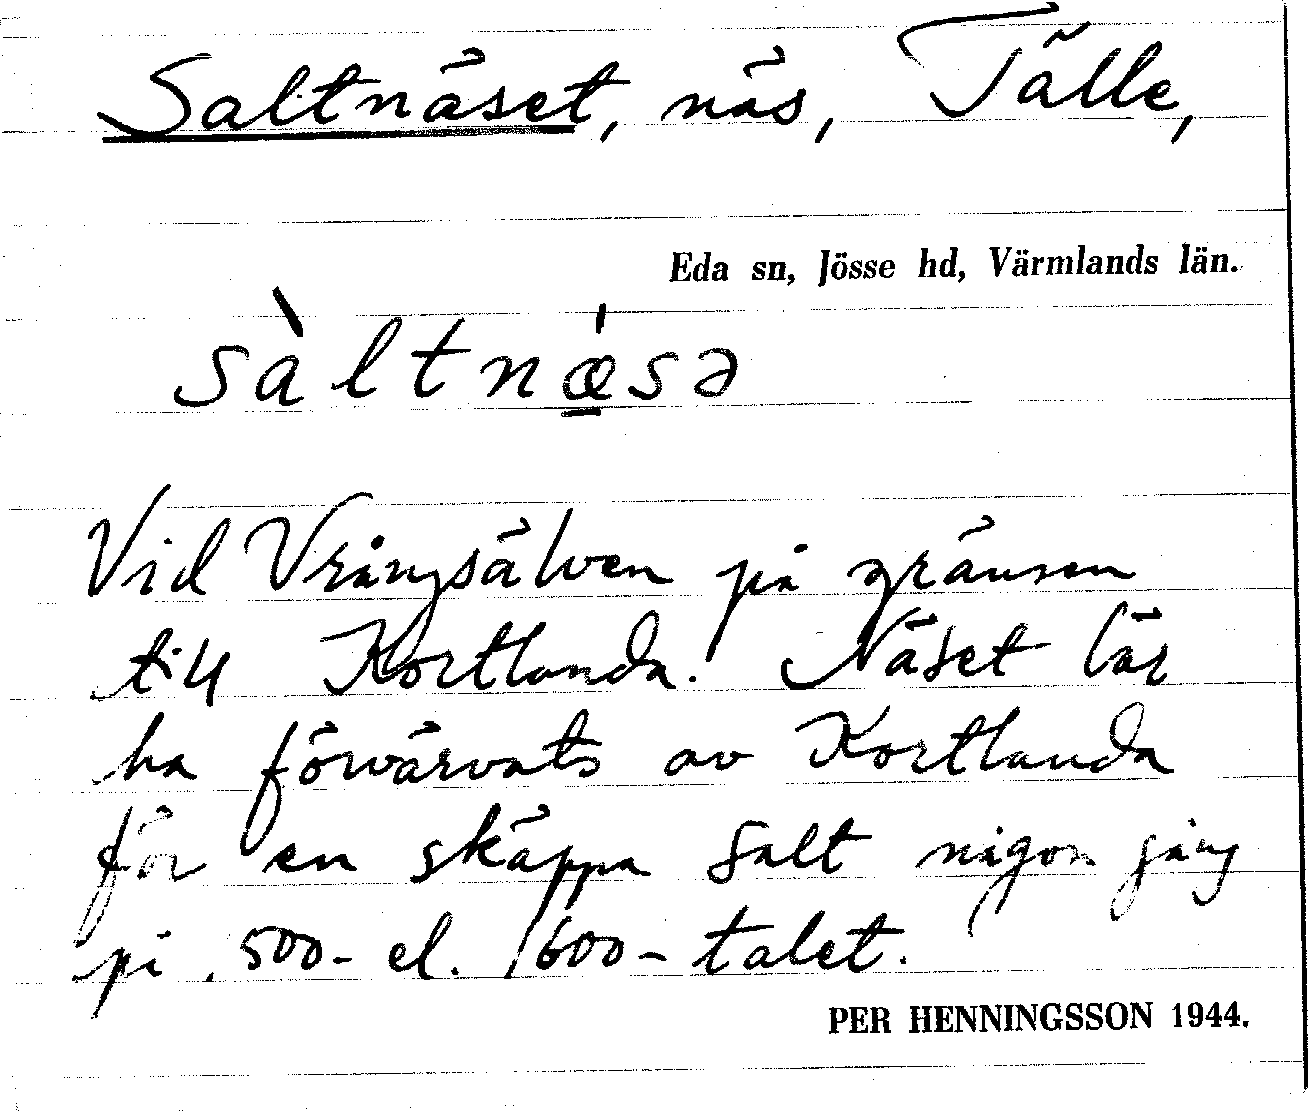 Saltnäset, näs, Tälle,
Eda sn, Jösse hd, Värmlands län.
sàltnǽ̱sə
Vid Vrångsälven på gränsen
till Kortlanda. Näset lär
ha förvärvats av Kortlanda
för en skäppa salt någon gång
på 1500- el. 1600-talet.
PER HENNINGSSON 1944.